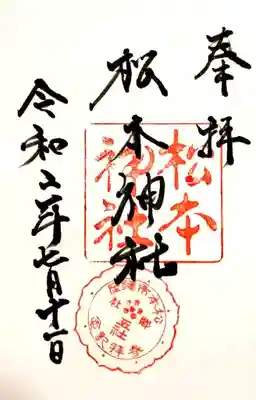 奉拝
松本神社
松本
神社
五社
令和二年七月十一日